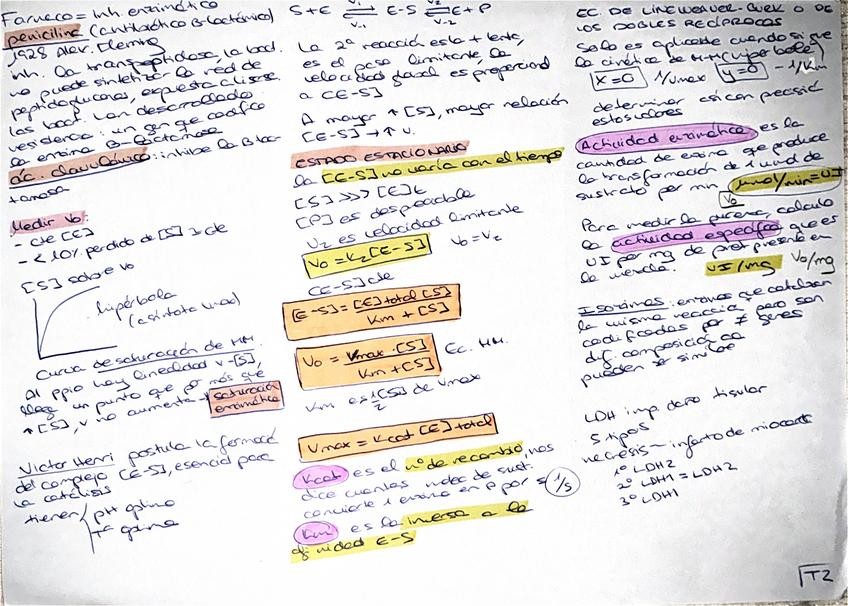 Farmaco = Inh. enzimático
penicilina (antibiótico B-lactámico)
1928 Alex. Fleming
inh. la transpeptidasa, la bact.
no puede sintetizar la red de
peptidoglucano, expuesta a lisis.
las bact. han desarrollado
resistencia: un gen que codifica
la enzima B-lactamasa
ác. clavulánico: inhibe la B-lac-
tamasa
Medir Vo:
- cte [E]
- < 10% perdido de [S] ≃ cte
[S] sobre vo
hipérbola
(asíntota vmax)
Curva de saturación de MM.
Al ppio hay linealidad v-[S],
llega un punto que por más que
↑[S], v no aumenta → saturación
enzimática
Victor Henri postula la formació
del complejo [E-S], esencial para
la catálisis
tienen
pH óptimo
Tª óptima
S+E ⇌ E-S ⇌ E+P
V₁ V₂
V₋₁ V₋₂
La 2ª reacción es la + lenta,
es el paso limitante, la
velocidad global es proporcional
a [E-S]
A mayor ↑[S], mayor relación
[E-S] → ↑ v.
ESTADO ESTACIONARIO
la [E-S] no varía con el tiempo
[S] >>> [E]t
[P] es despreciable
V₂ es velocidad limitante
Vo = K₂[E-S] Vo = V₂
[E-S] cte
[E-S] = [E]total [S] / Km + [S]
Vo = Vmax · [S] / Km + [S] Ec. MM.
Km es 1/2 [S] de Vmax
Vmax = Kcat [E] total
Kcat es el nº de recambio, nos
dice cuantas molec de sust.
convierte 1 enzima en P por s (1/s)
Km es la inversa a la
afinidad E-S
EC. DE LINEWEAVER-BURK O DE
LOS DOBLES RECÍPROCOS
Solo es aplicable cuando si que
la cinética de MM (hiperbole)
x=0 1/Vmax y=0 -1/Km
determinar así con precisió
estos valores
Actividad enzimática es la
cantidad de enzima que produce
la transformación de 1 umol de
sustrato por min μmol/min = UI
Vo
Para medir la pureza, calculo
la actividad específica que es
UI por mg de prot presente en
la mezcla. UI/mg Vo/mg
Isozimas: enzimas que catalizan
la misma reacción pero son
codificadas por ≠ genes
dif. composición aa
pueden ser
LDH imp. daño tisular
5 tipos
necrosis - infarto de miocardi
1º LDH2
2º LDH1 = LDH2
3º LDH1
T2